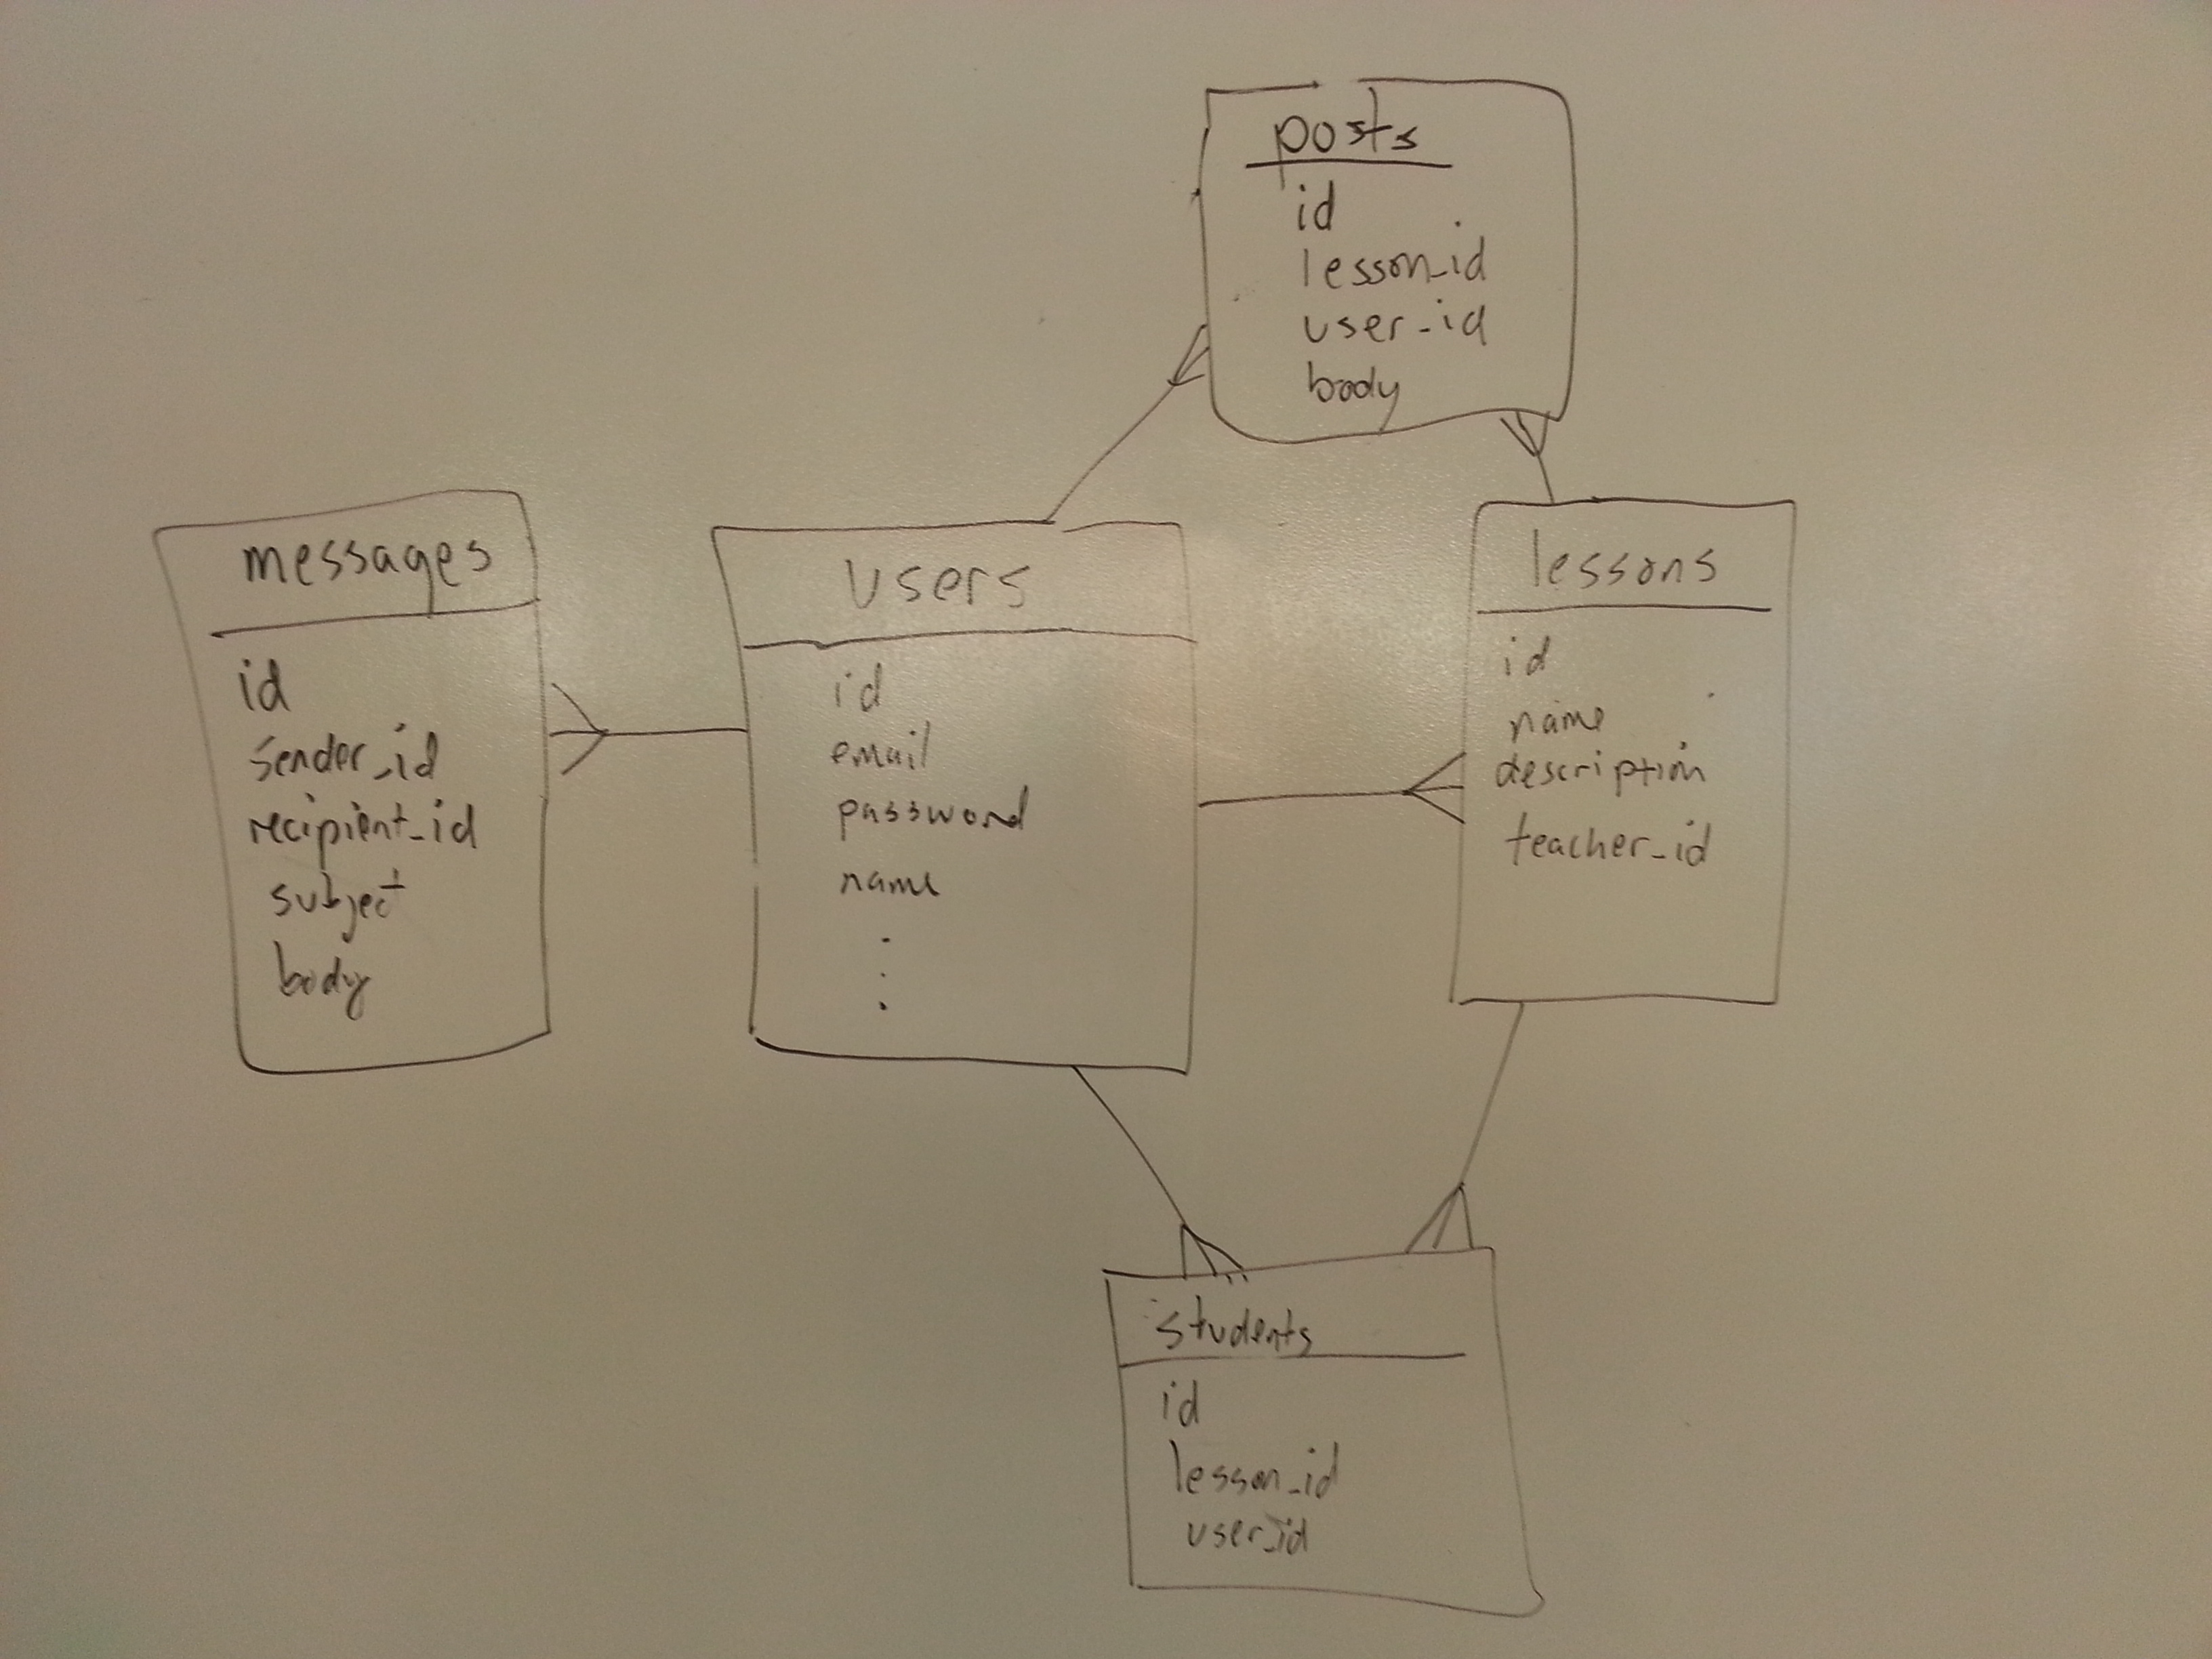 posts
id
lesson_id
user_id
body
messages
id
sender_id
recipient_id
subject
body
users
id
email
password
name
lessons
id
name
description
teacher_id
students
id
lesson_id
user_id